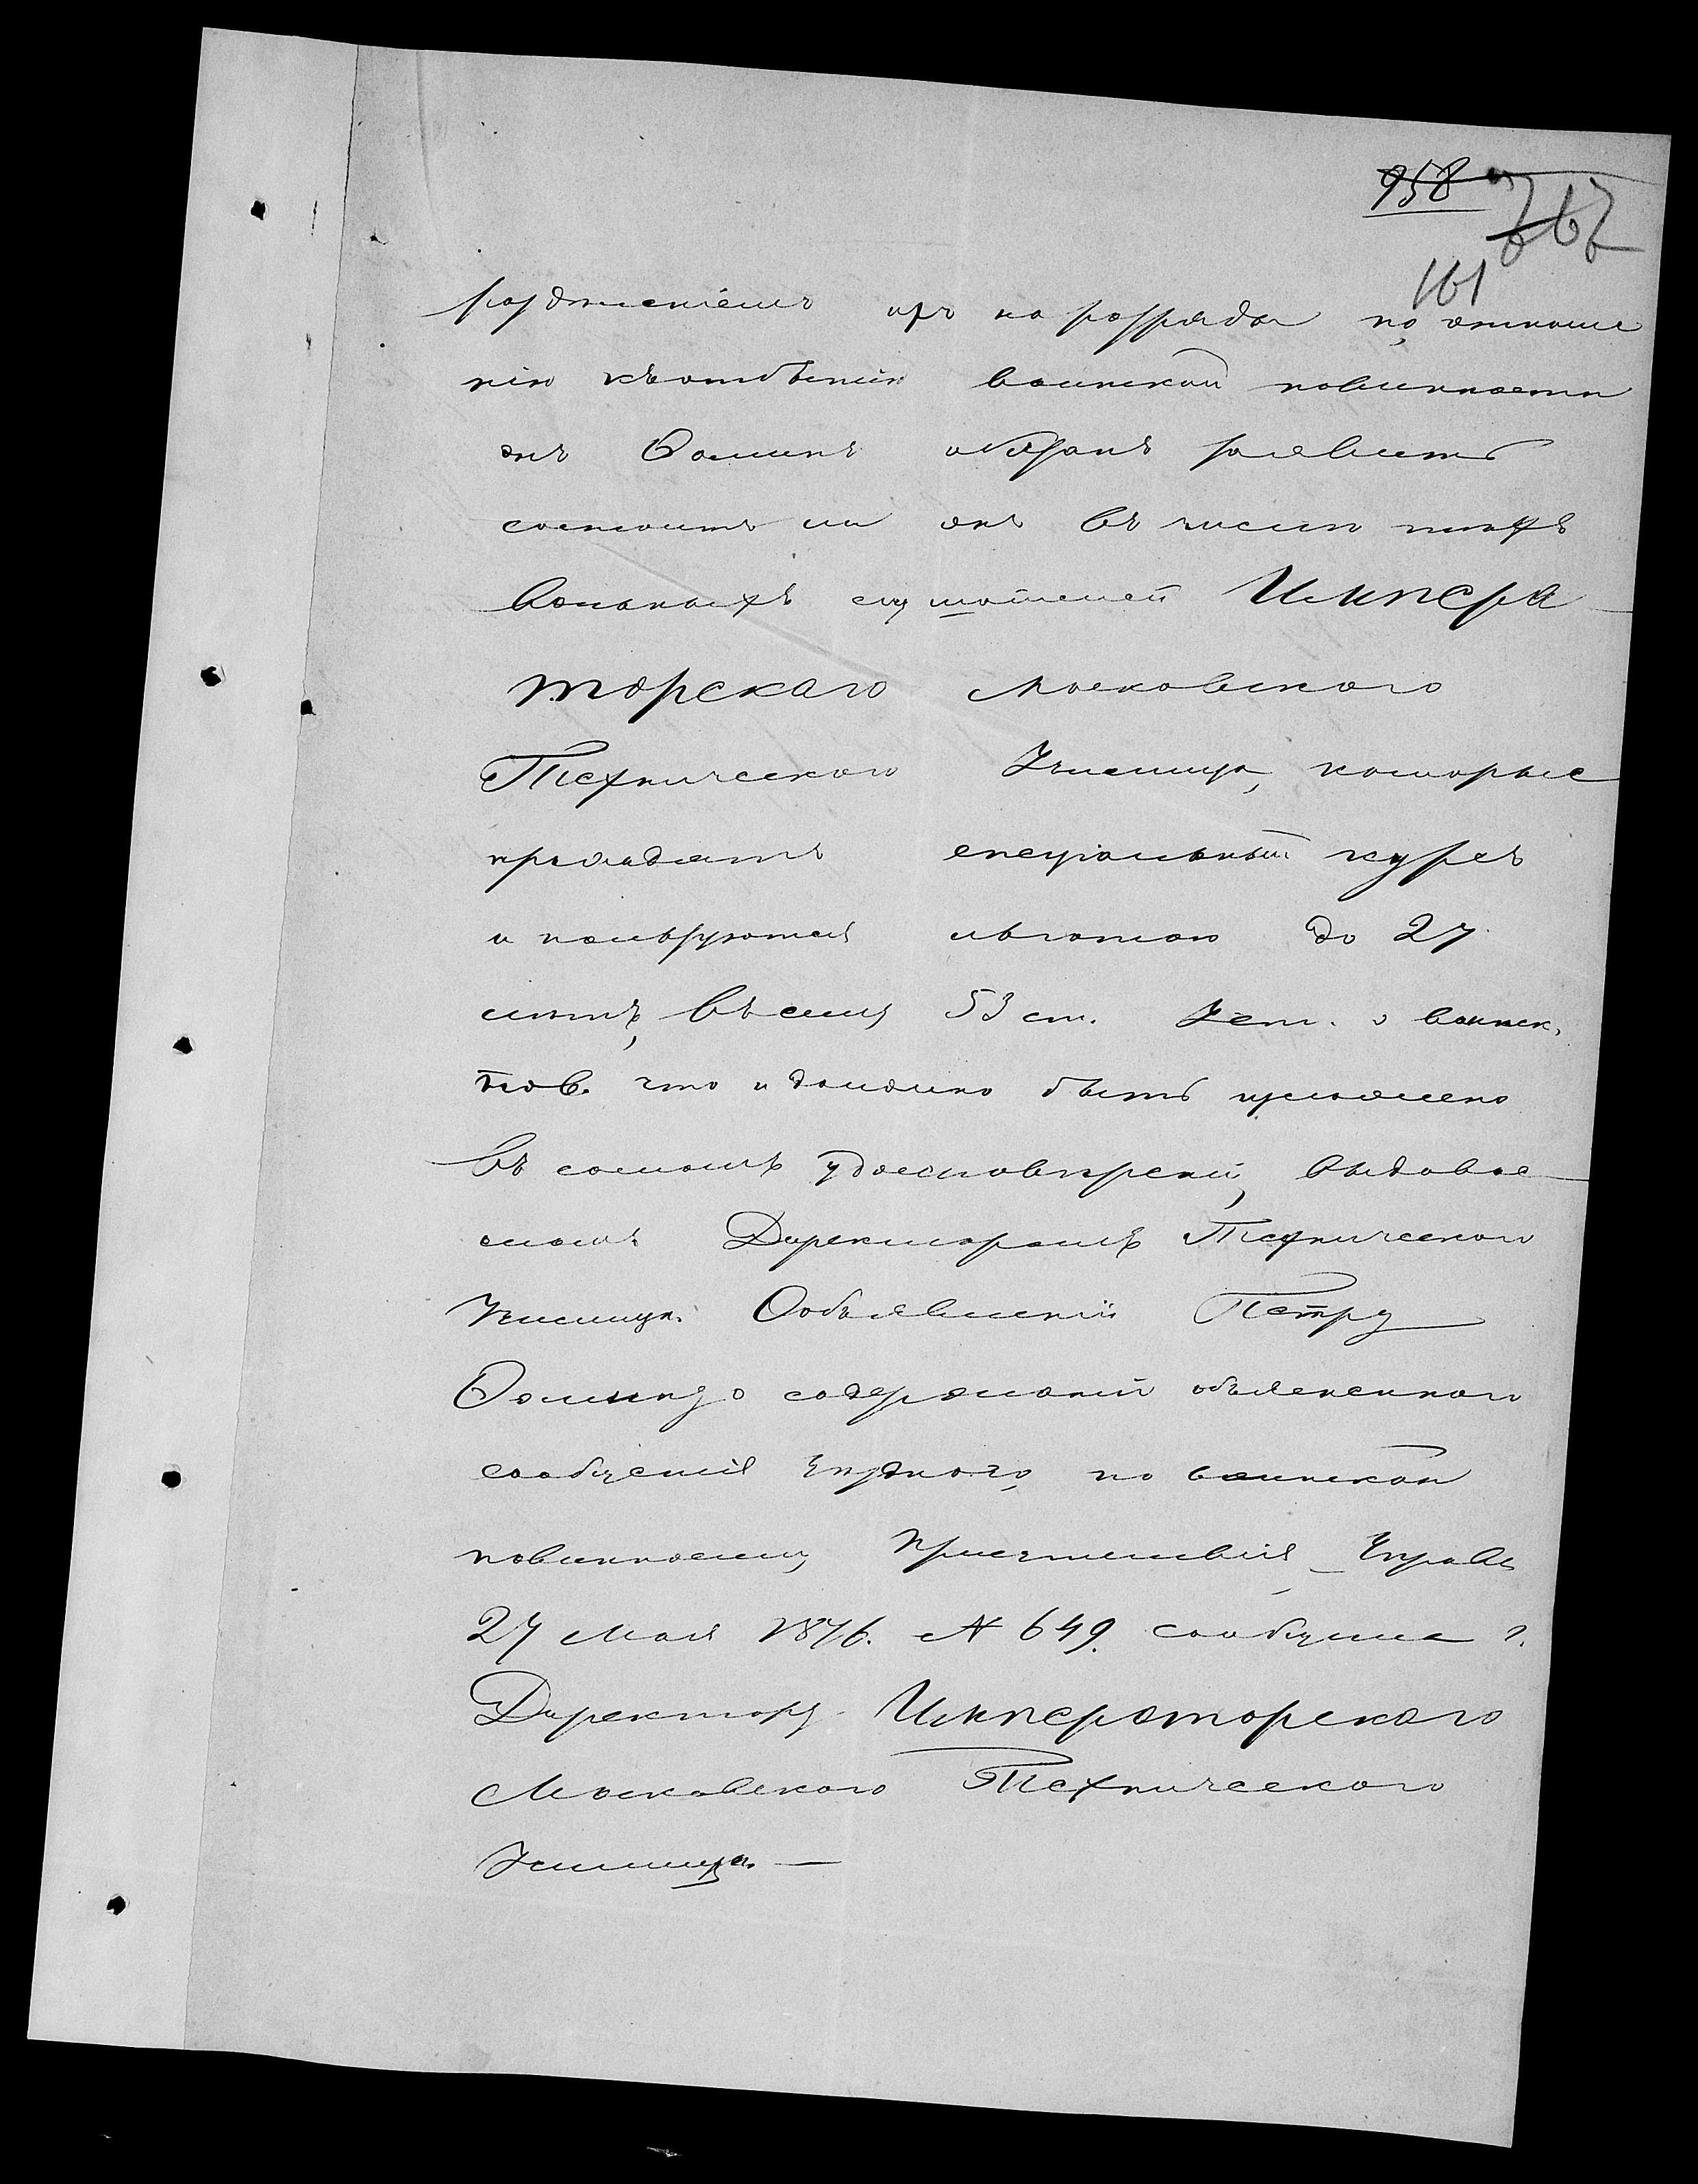 958
767
161
раздѣленіемъ ихъ на разряды по отноше
нію къ отбытію воинской повинности
онъ Ѳоминъ обязанъ заявить
состоитъ ли онъ въ числѣ тѣхъ
вольныхъ слушателей Импера
торскаго Московскаго
Техническаго Училища, которые
проходятъ спеціальный курсъ
и пользуются льготою до 27
лѣтъ, въ силу 53 ст. Уст. о воинск.
пов. что и должно быть изложено
въ самомъ удостовѣреніи, выдавае
момъ Директоромъ Техническаго
Училища. Объ объявленіи Петру
Ѳомину о содержаніи объясненнаго
сообщенія Уѣзднаго по воинской
повинности Присутствія Управа
27 Мая 1876. № 649. сообщила г.
Директору Императорскаго
Московскаго Техническаго
Училища. —